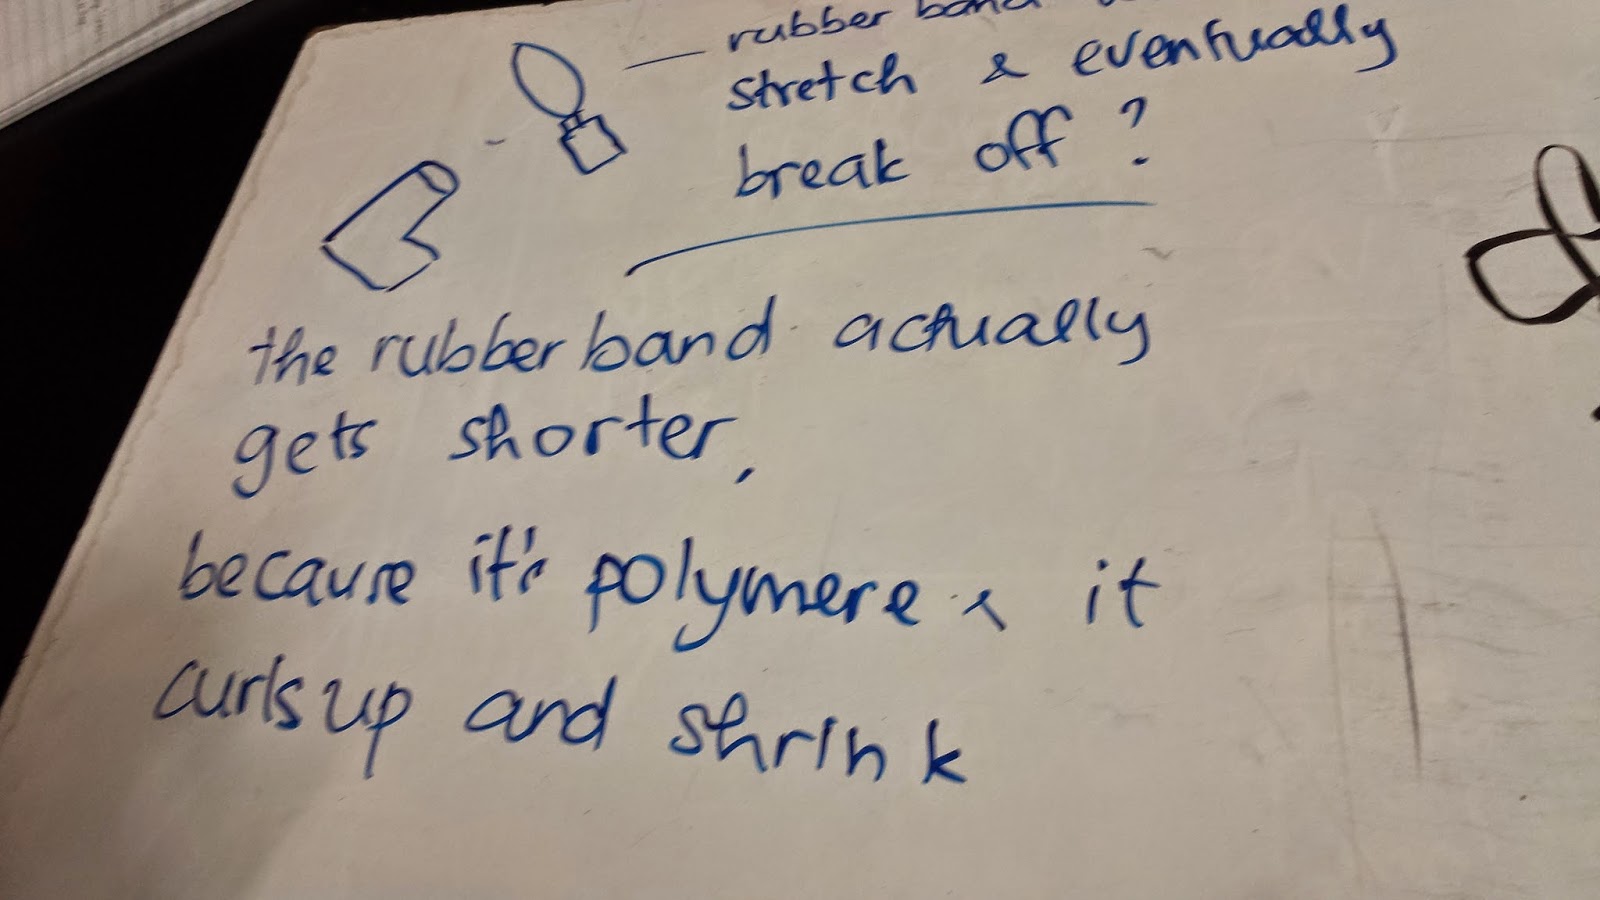 rubber band
stretch & eventually
break off ?
the rubber band actually
gets shorter,
because it's polymere & it
curls up and shrink